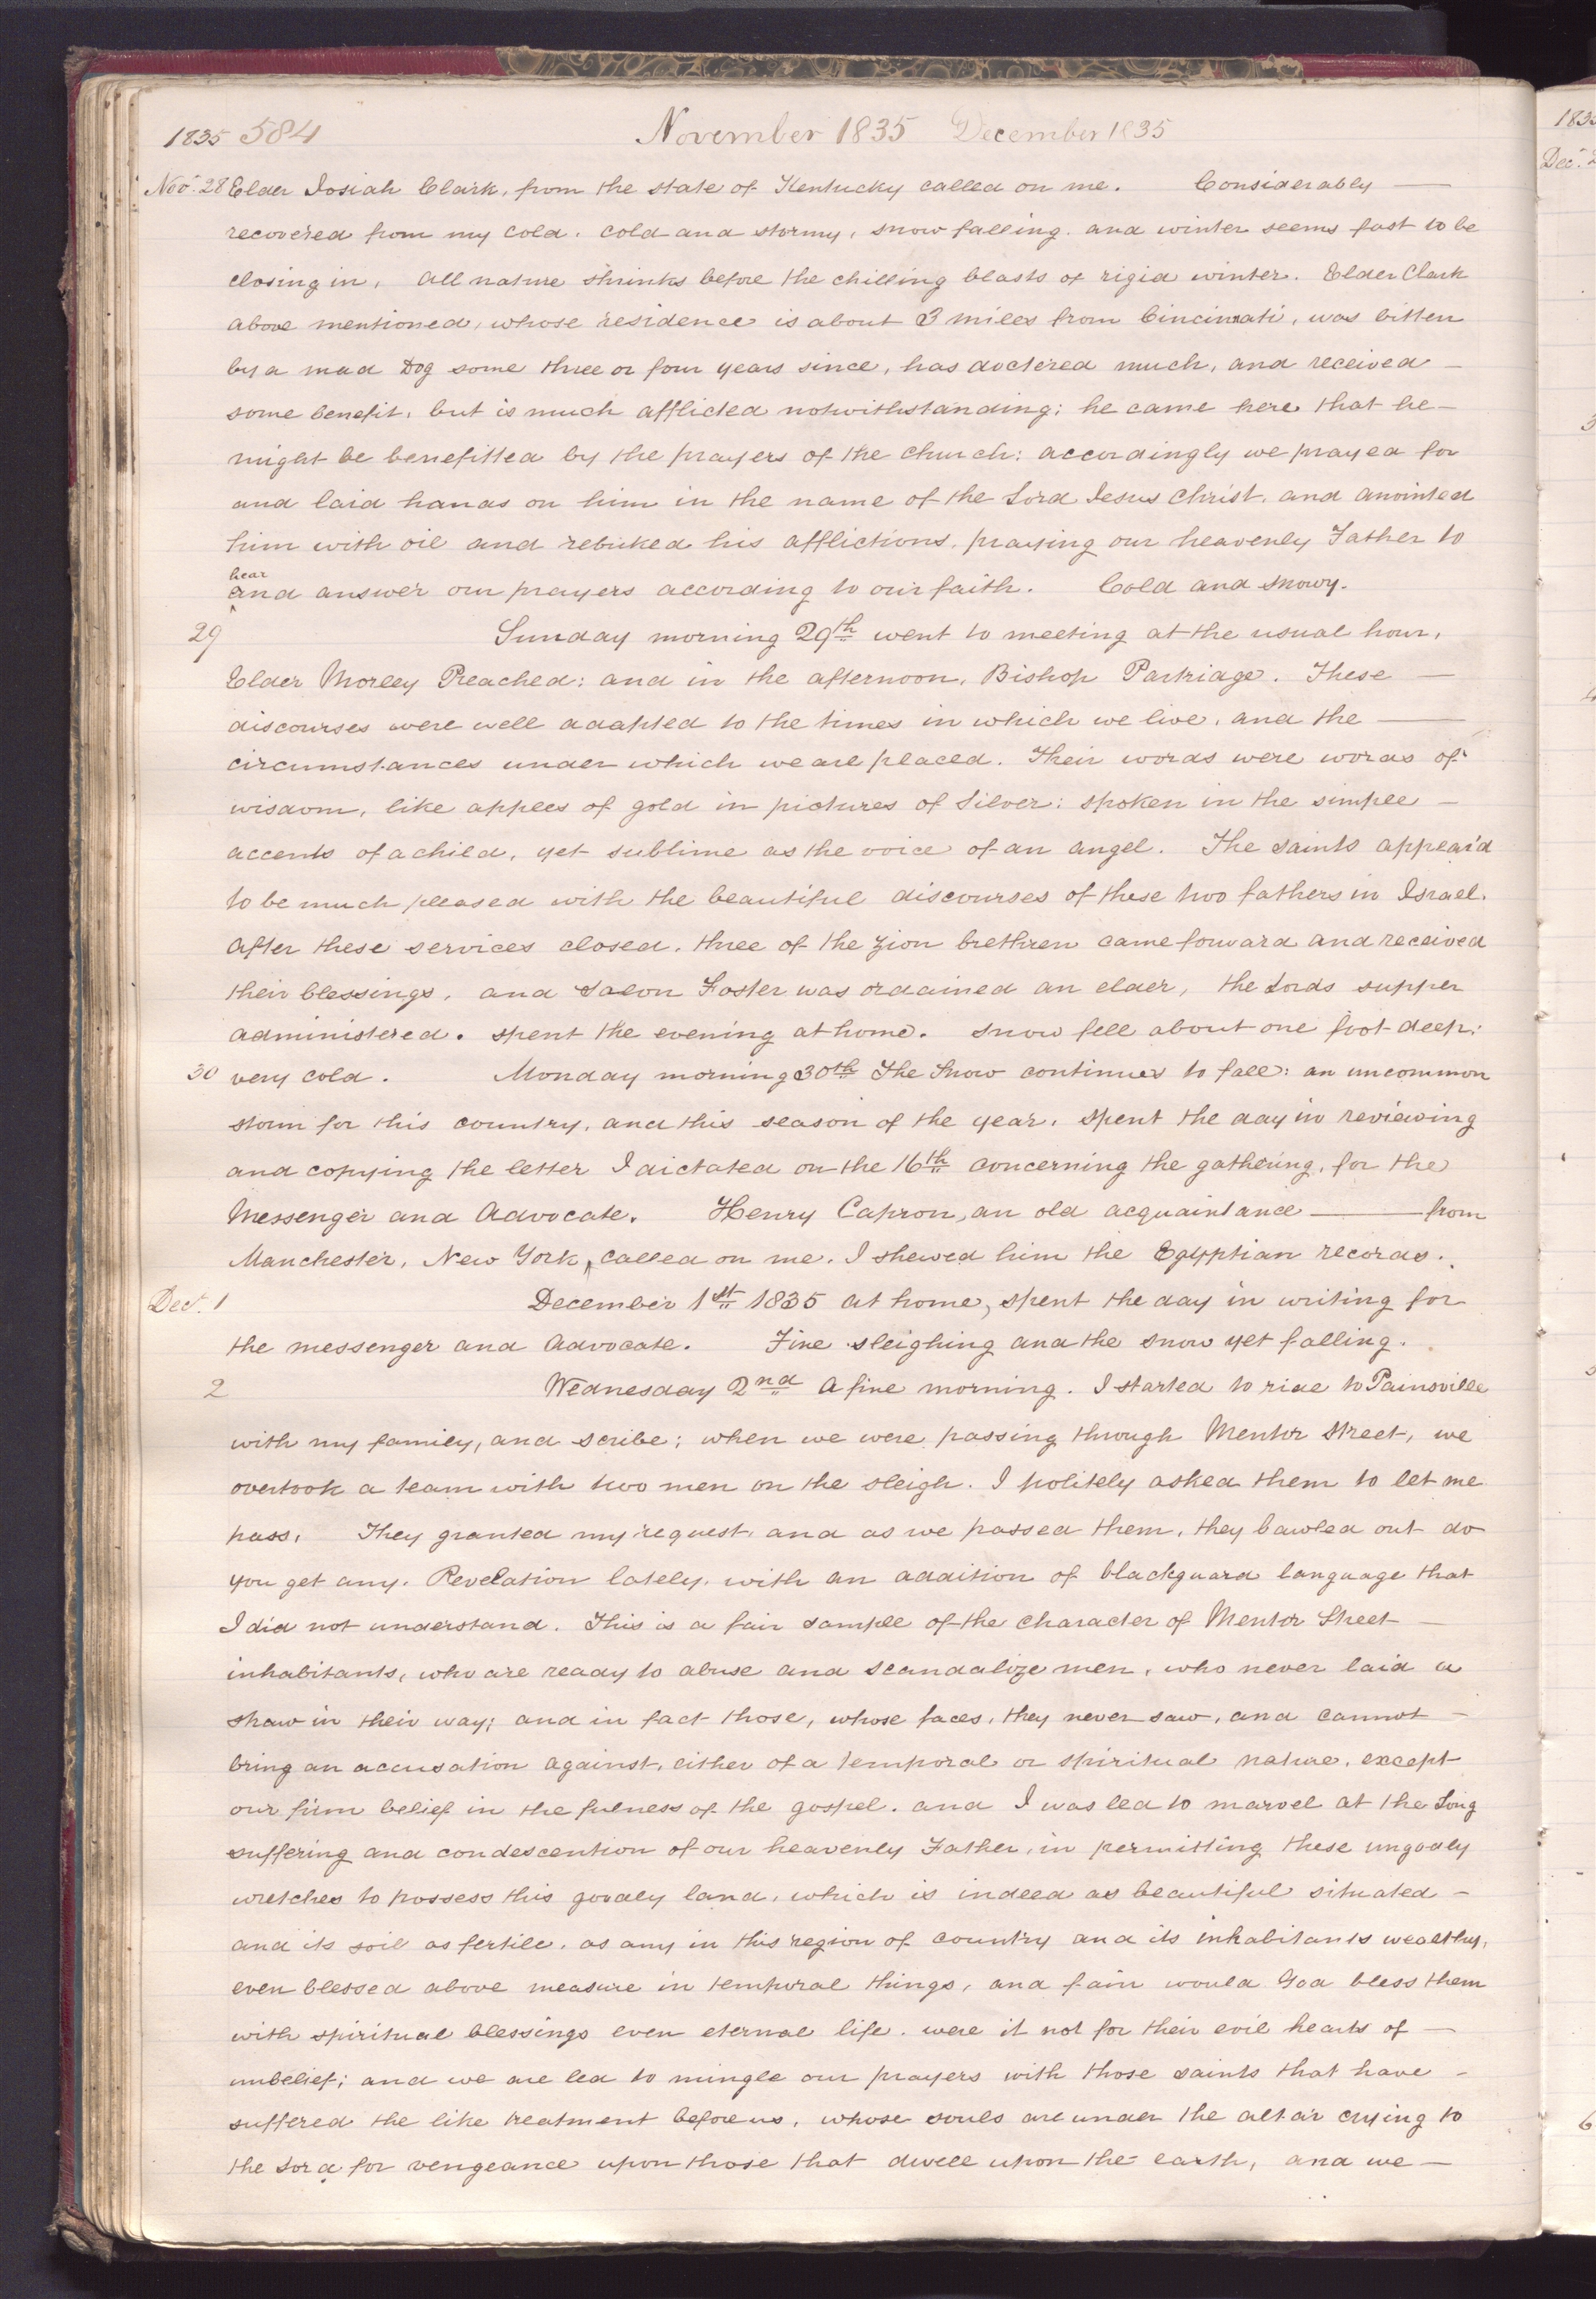 1835 584 November 1835 December 1835
Nov. 28 Elder Josiah Clark, from the state of Kentucky called on me. Considerably —
recovered from my cold. cold and stormy, snow falling. and winter seems fast to be
closing in, All nature shrinks before the chilling blasts of rigid winter. Elder Clark
above mentioned, whose residence is about 3 miles from Cincinnati, was bitten
by a mad Dog some three or four years since, has doctered much, and received —
some benefit, but is much afflicted notwithstanding; he came here that he —
might be benefitted by the prayers of the church: accordingly we prayed for
and laid hands on him in the name of the Lord Jesus Christ, and anointed
him with oil and rebuked his afflictions, praying our heavenly Father to
hear
and answer our prayers according to our faith. Cold and snowy.
29 Sunday morning 29th went to meeting at the usual hour,
Elder Morley Preached; and in the afternoon, Bishop Partridge. These —
discourses were well adapted to the times in which we live, and the —
circumstances under which we are placed. Their words were words of
wisdom, like apples of gold in pictures of Silver; spoken in the simple —
accents of a child, yet sublime as the voice of an angel. The saints appear'd
to be much pleased with the beautiful discourses of these two fathers in Israel.
After these services closed, three of the Zion brethren came forward and received
their blessings, and Solon Foster was ordained an elder, the Lords supper
administered. spent the evening at home. Snow fell about one foot deep;
30 very cold. Monday morning 30th The Snow continues to fall: an uncommon
storm for this country, and this season of the year, Spent the day in reviewing
and copying the letter I dictated on the 16th concerning the gathering, for the
Messenger and Advocate. Henry Capron, an old acquaintance — from
Manchester, New York, called on me. I shewed him the Egyptian records.
Dec. 1 December 1st 1835 at home, spent the day in writing for
the messenger and Advocate. Fine sleighing and the snow yet falling.
2 Wednesday 2nd A fine morning. I started to ride to Painsville
with my family, and scribe; when we were passing through Mentor Street, we
overtook a team with two men on the sleigh. I politely asked them to let me
pass, They granted my request, and as we passed them, they bawled out do
you get any. Revelation lately, with an addition of blackguard language that
I did not understand. This is a fair sample of the character of Mentor Street —
inhabitants, who are ready to abuse and scandalize men, who never laid a
straw in their way; and in fact those, whose faces, they never saw, and cannot —
bring an accusation against, either of a temporal or spiritual nature, except
our firm belief in the fulness of the gospel. and I was led to marvel at the Long
suffering and condescention of our heavenly Father, in permitting these ungodly
wretches to possess this goodly land, which is indeed as beautiful situated —
and its soil as fertile, as any in this region of country and its inhabitants wealthy,
even blessed above measure in temporal things, and fain would God bless them
with spiritual blessings even eternal life. were it not for their evil hearts of —
unbelief; and we are led to mingle our prayers with those saints that have —
suffered the like treatment before us, whose souls are under the altar crying to
the Lord for vengeance upon those that dwell upon the earth, and we —